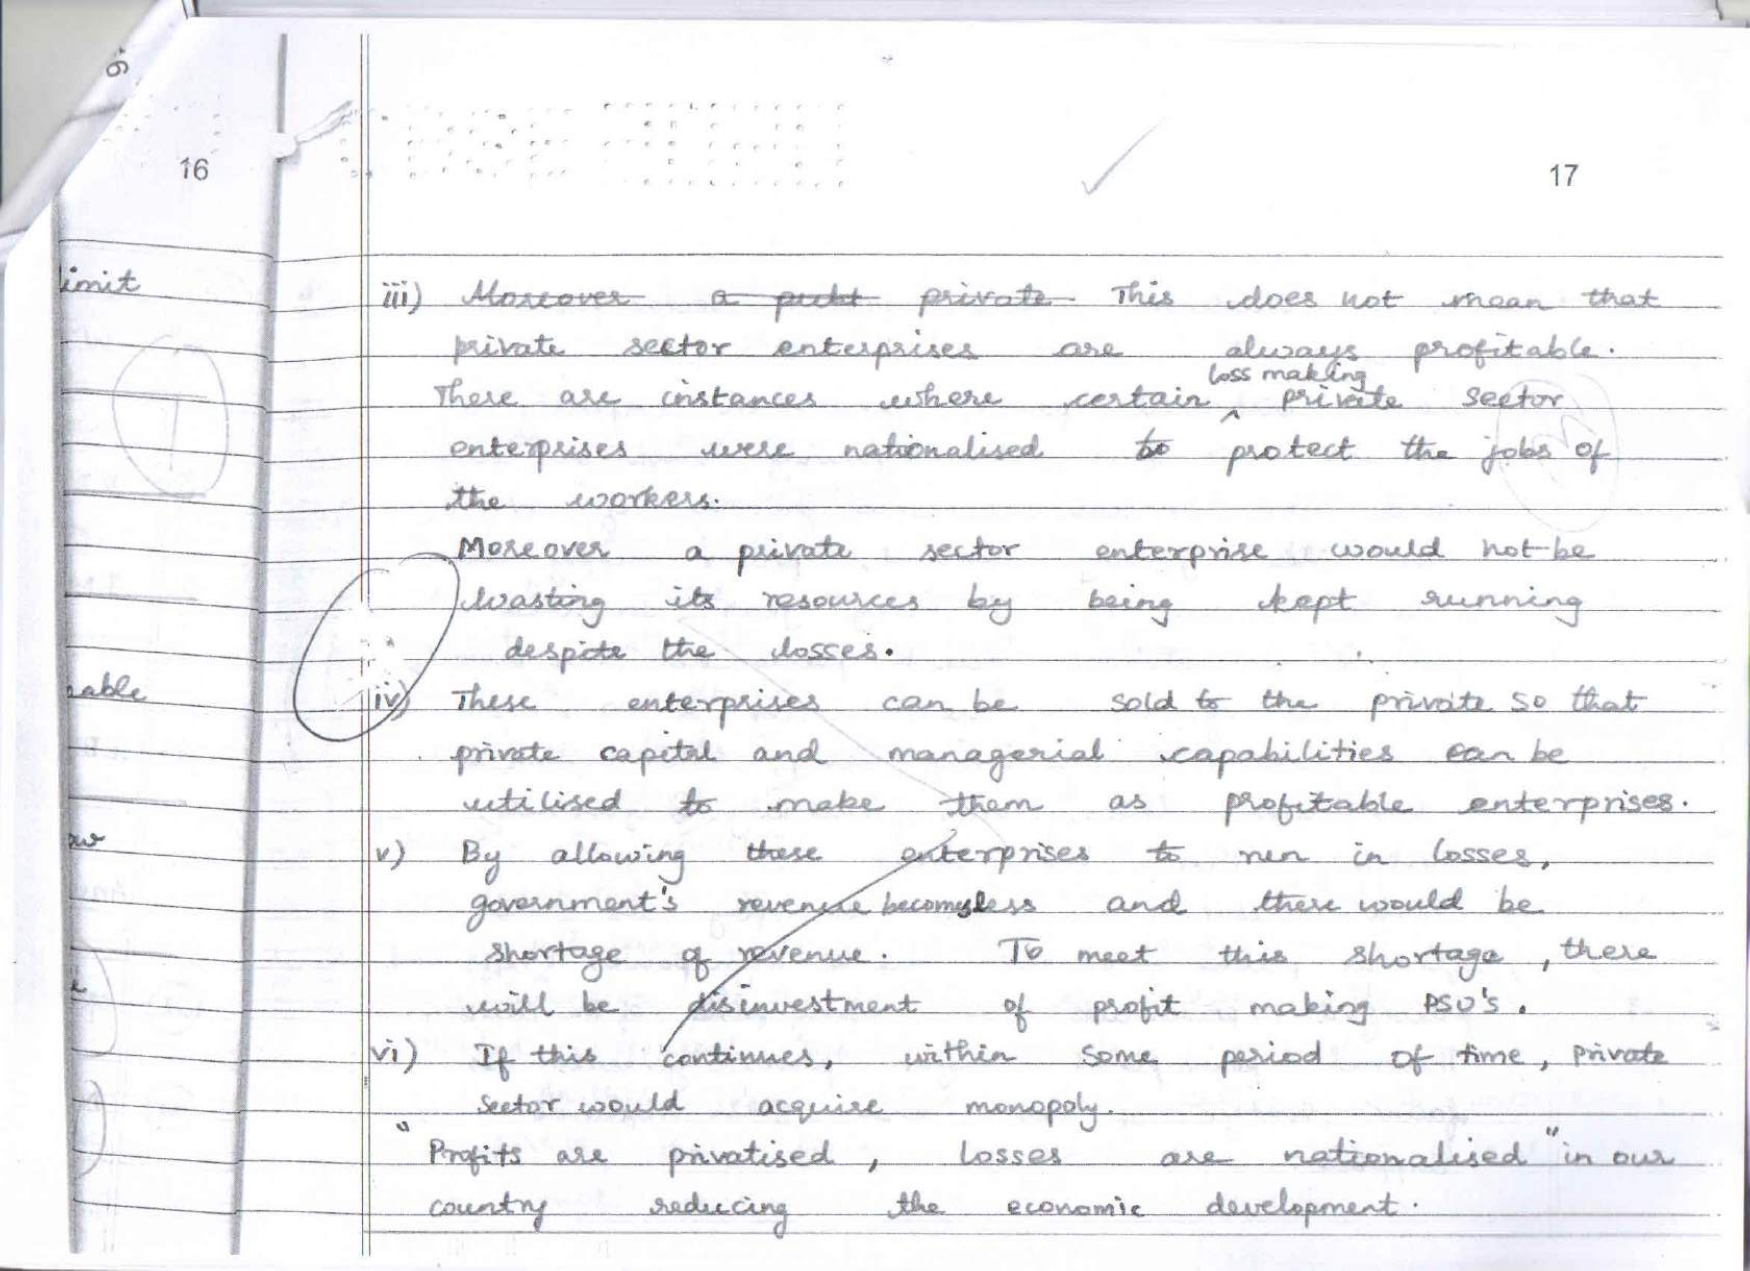 16
17
imit
iii) Moreover a publ private This does not mean that
private sector enterprises are always profitable.
loss making
There are instances where certain ^ private sector
enterprises were nationalised to protect the jobs of
the workers.
Moreover a private sector enterprise would not be
wasting its resources by being kept running
despite the losses.
iv) These enterprises can be sold to the private so that
private capital and managerial capabilities can be
utilised to make them as profitable enterprises.
v) By allowing these enterprises to run in losses,
government's revenue becomes less and there would be
shortage of revenue. To meet this shortage, there
will be disinvestment of profit making PSU's.
vi) If this continues, within some period of time, private
sector would acquire monopoly.
"Profits are privatised, losses are nationalised" in our
country reducing the economic development.